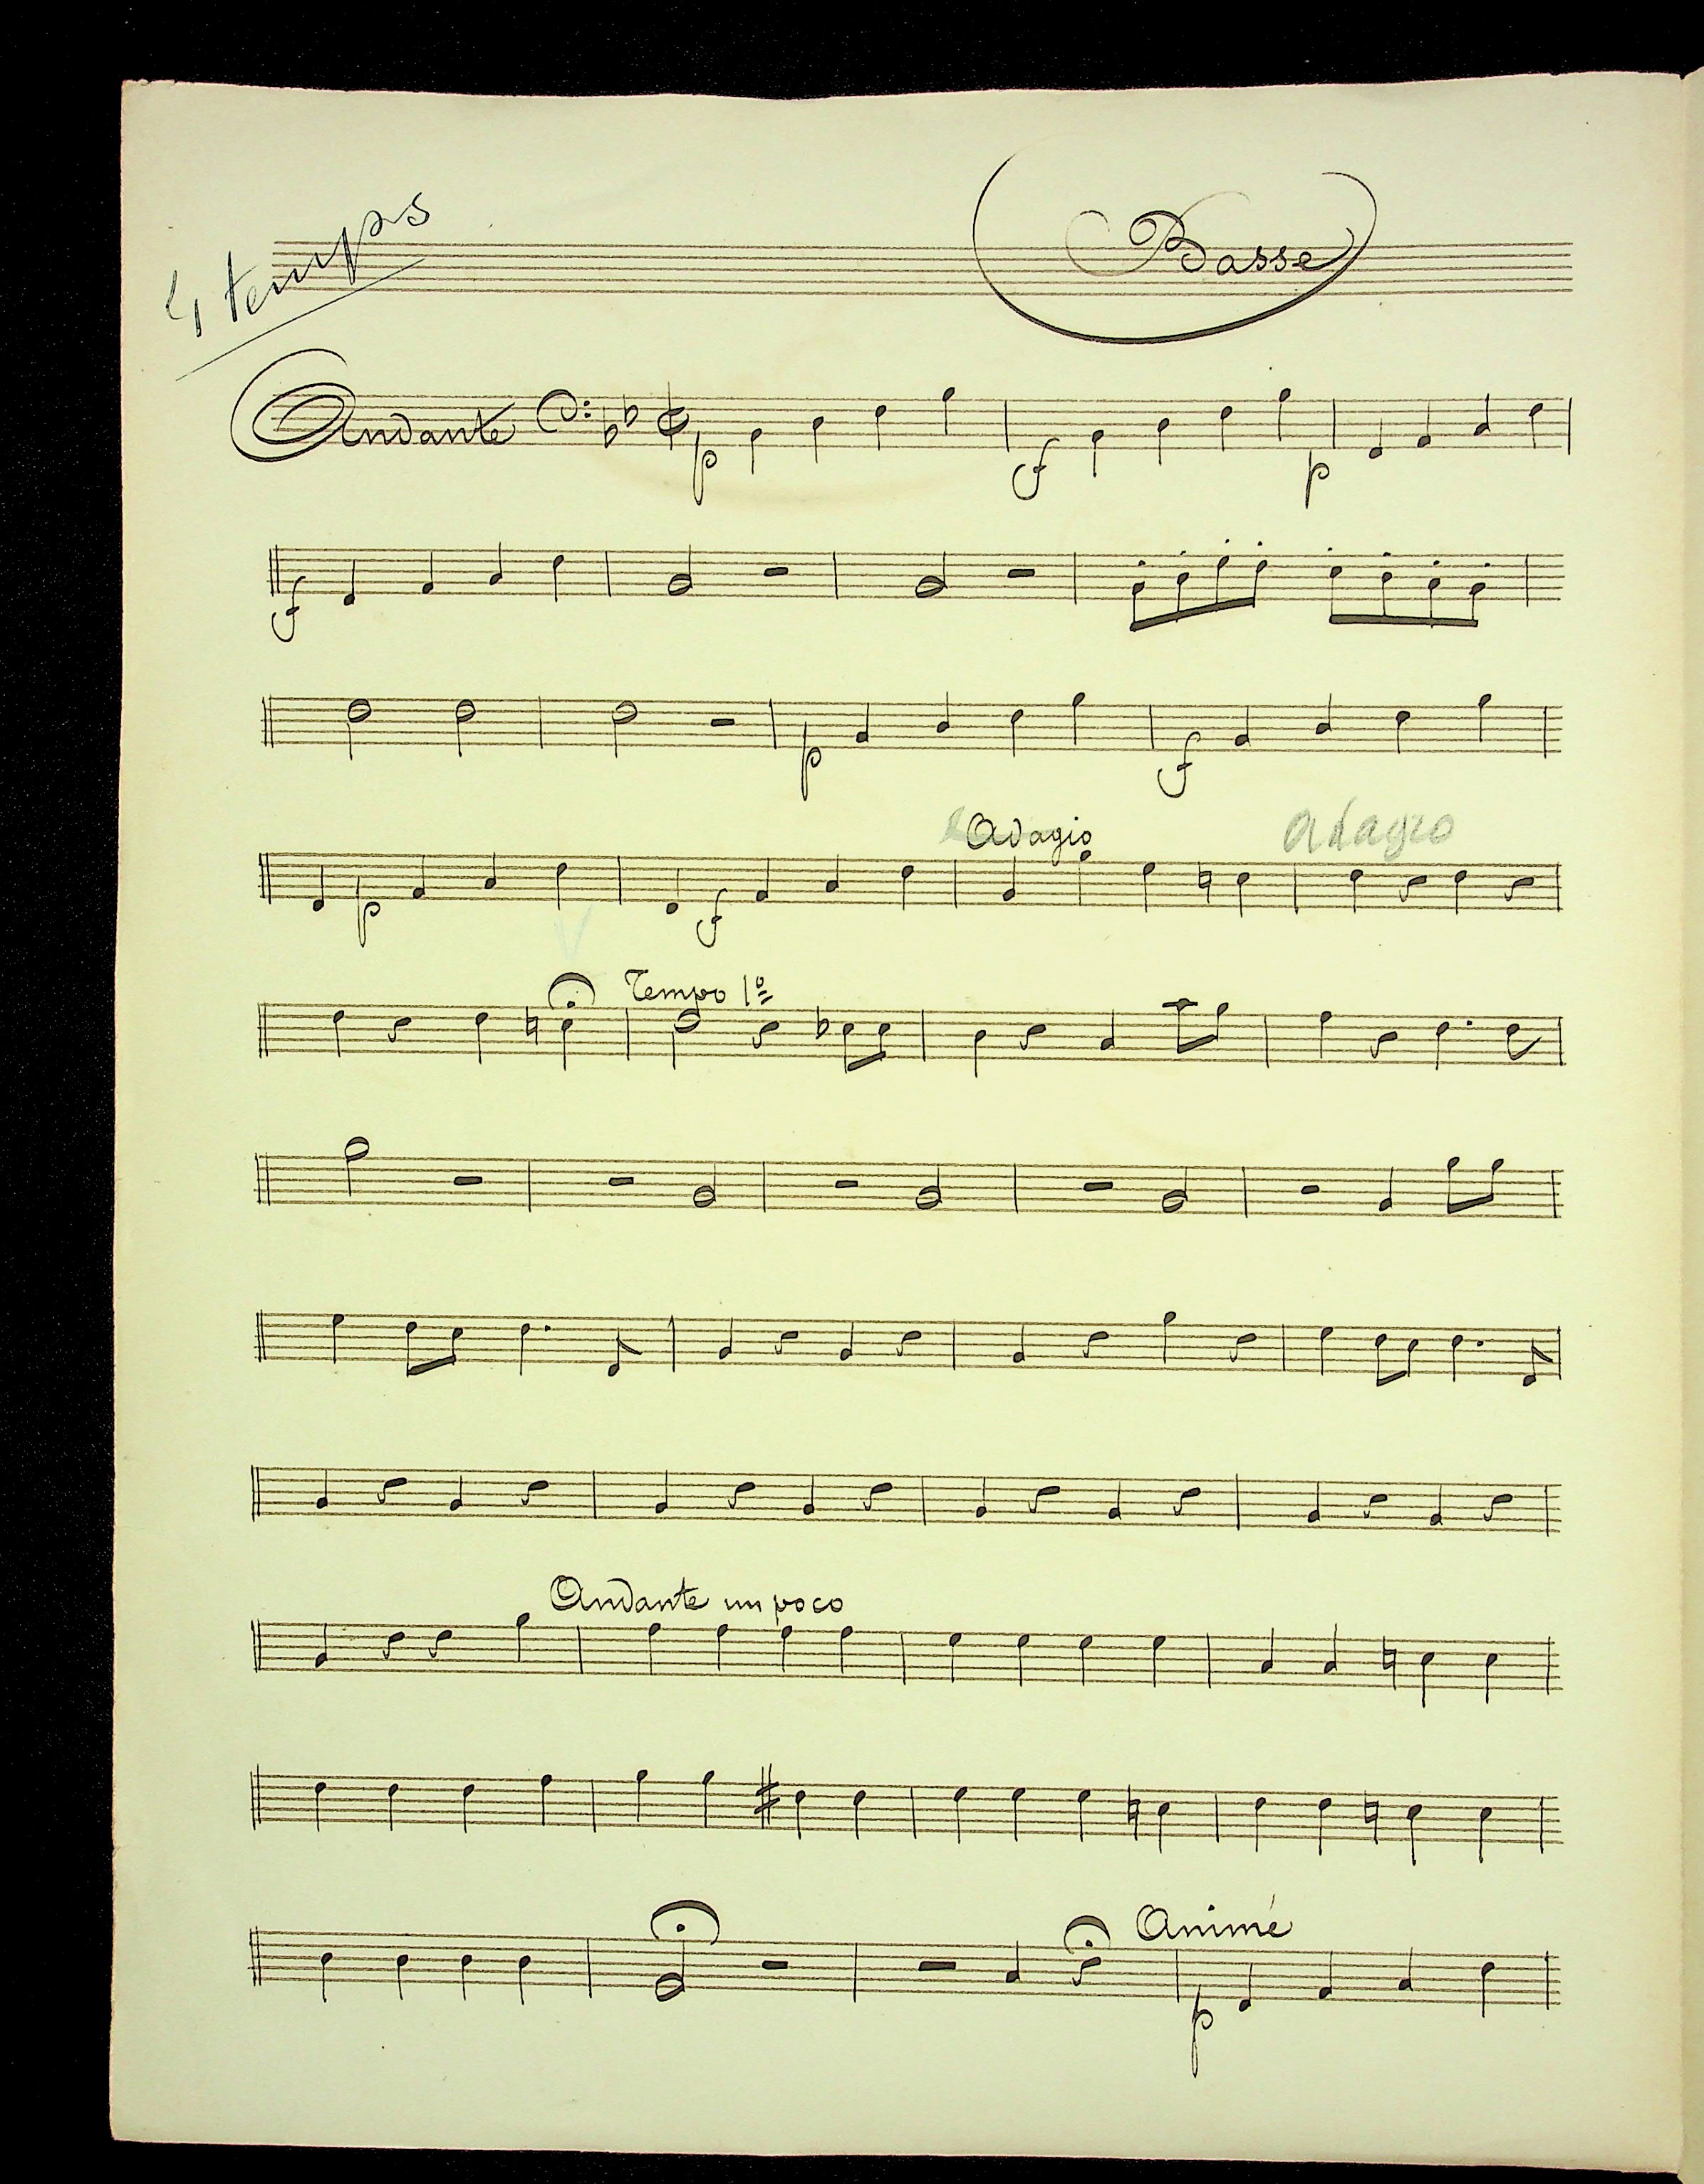 4 temps
Basse
Andante
p f p
f
p f
Adagio Adagio
p f
Tempo 1º
Andante un poco
Animé
p